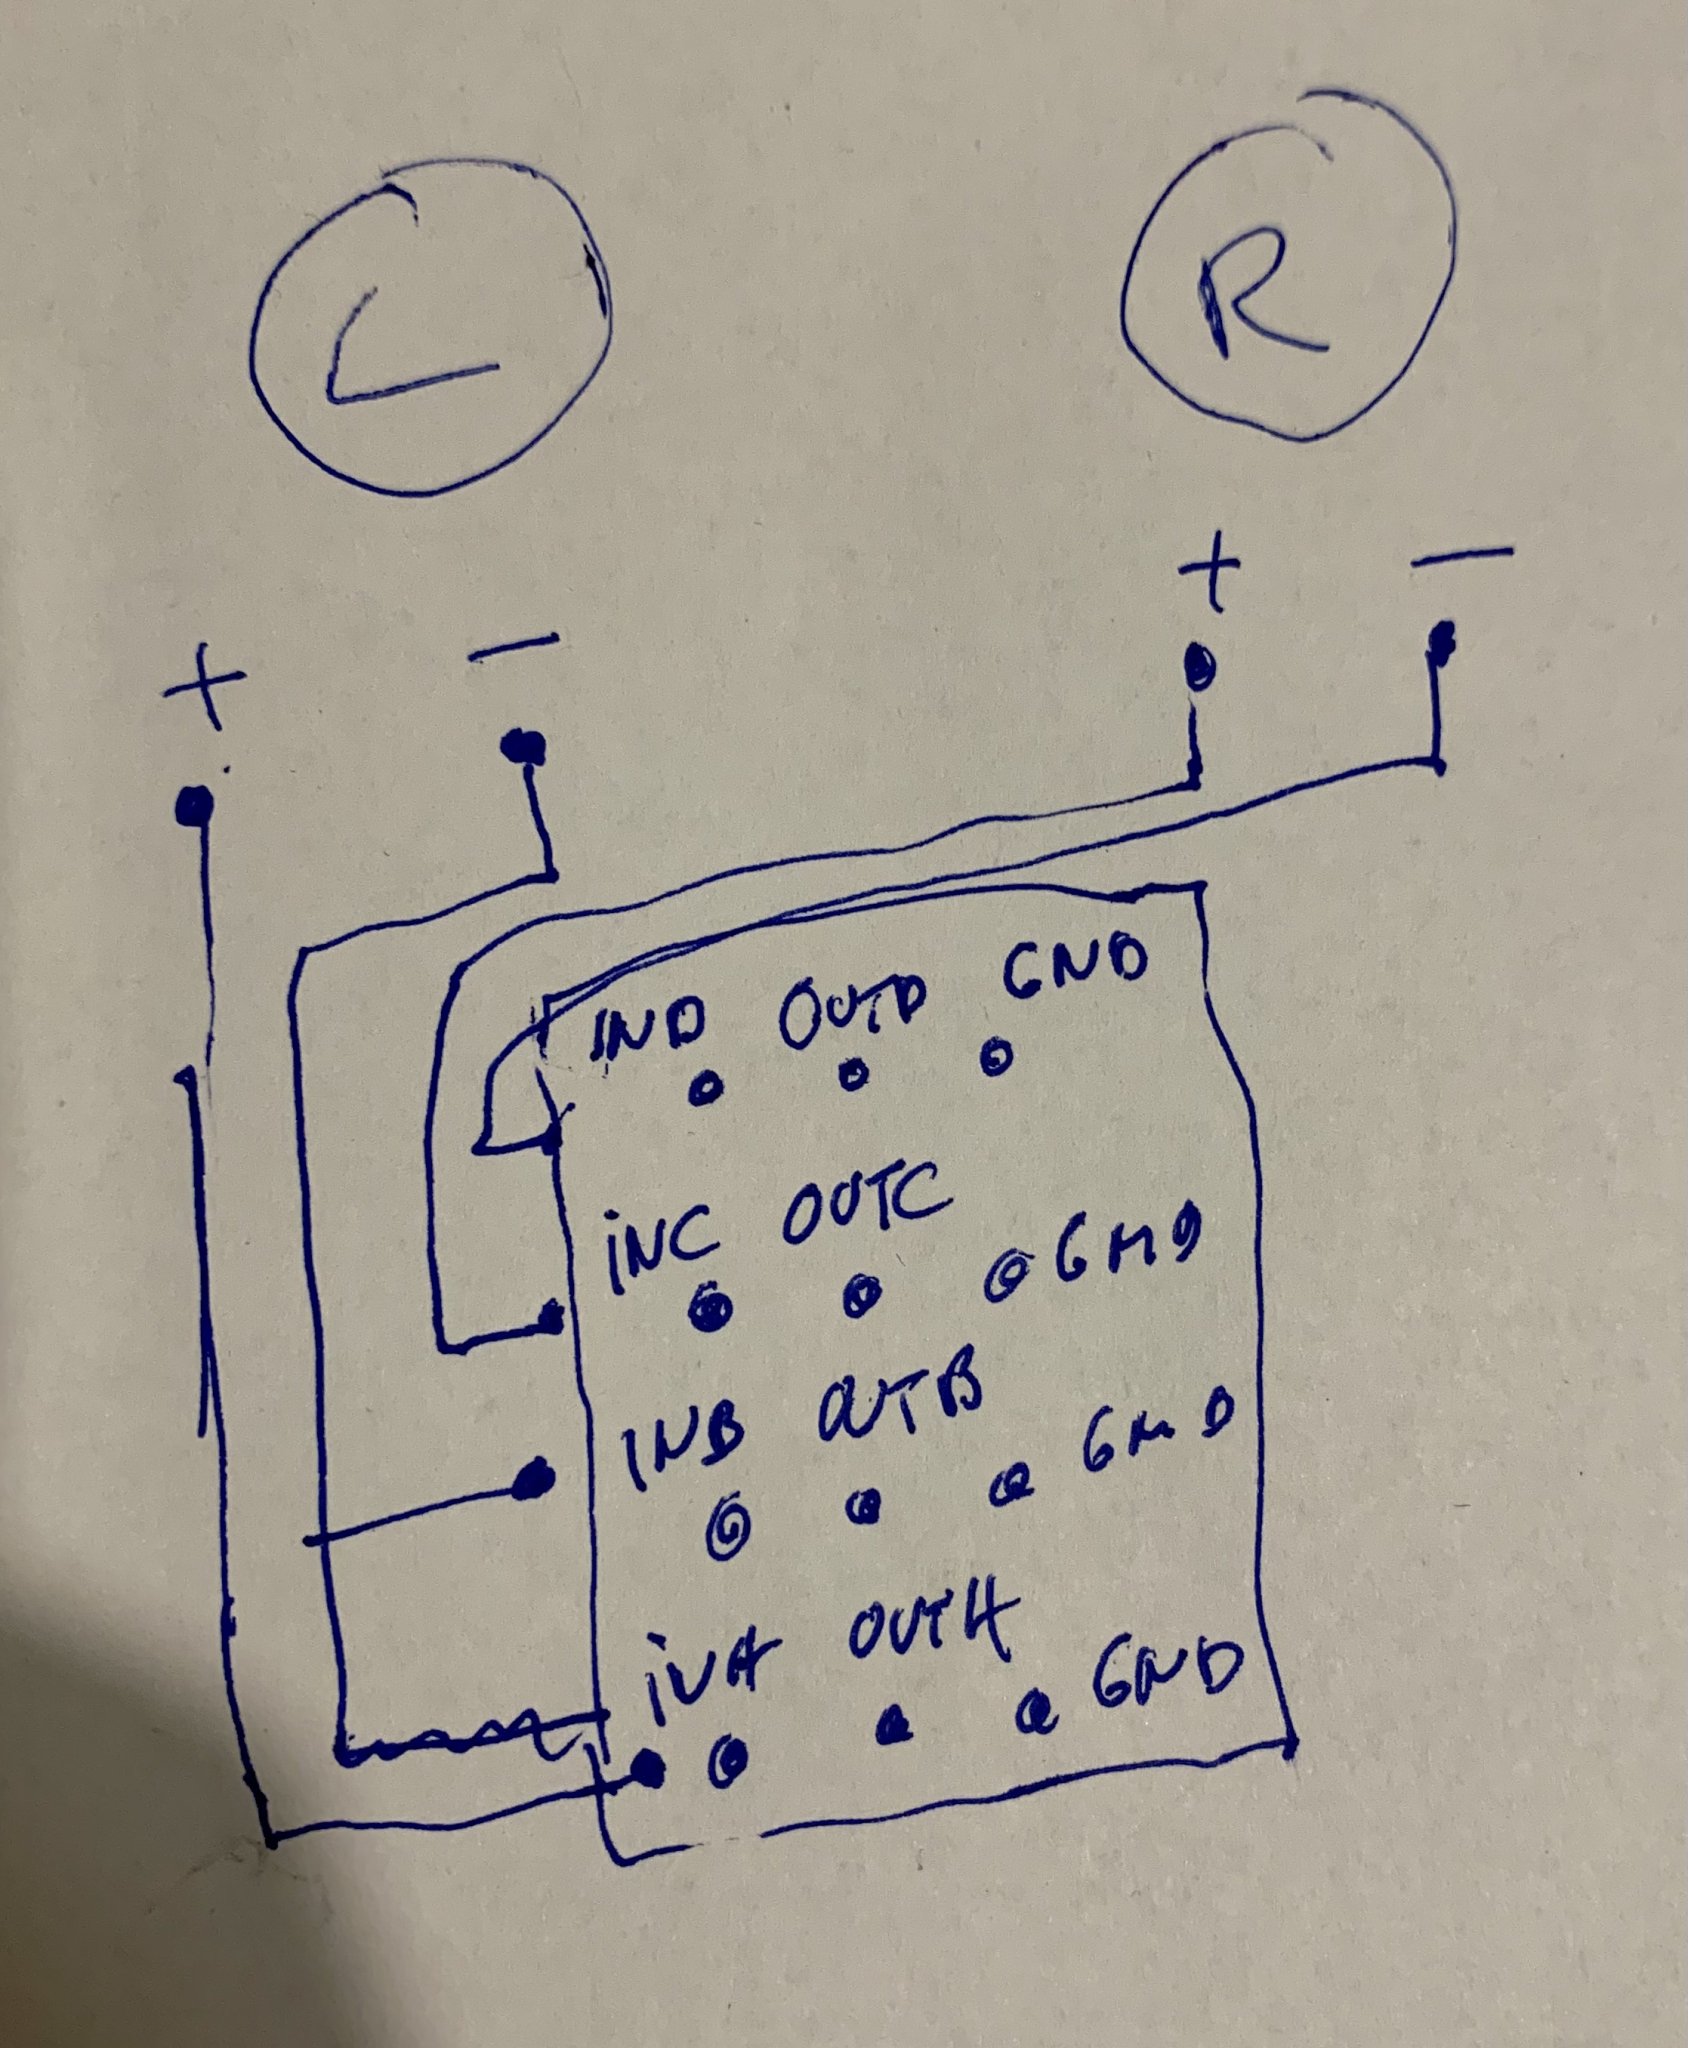 L R
+ - + -
IND OUTD GND
INC OUTC GND
INB OUTB GND
INA OUTA GND